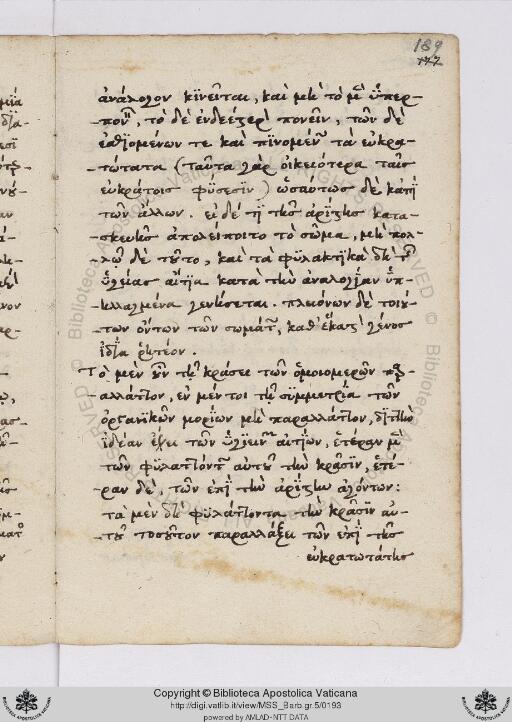 189
177
ἀνάλογον κινεῖται, καὶ μὴ τὸ μὲν ὑπερ-
-πονῇ, τὸ δὲ ἐνδεέστερον πονεῖν, τῶν δὲ
ἐσθιομένων τε καὶ πινομένων τὰ εὐκρα-
-τότατα (ταῦτα γὰρ οἰκειότερα ταῖς
εὐκράτοις φύσεσιν) ὡσαύτως δὲ κἀπὶ
τῶν ἄλλων. εἰ δέ τι τῆς ἀρίστης κατα-
-σκευῆς ἀπολείποιτο τὸ σῶμα, μὴ πολ-
-λῷ δὲ τοῦτο, καὶ τὰ φυλακτικὰ δὴ τῆς
ὑγιείας αἴτια κατὰ τὴν ἀναλογίαν ὑπ-
-ηλλαγμένα γενήσεται. πλειόνων δὲ τοιού-
-των ὄντων τῶν σωμάτων, καθ' ἕκαστον γένος
ἰδίᾳ ῥητέον.
Τὸ μὲν οὖν τῇ κράσει τῶν ὁμοιομερῶν παρ-
-αλλάττον, ἐν μέντοι τῇ συμμετρίᾳ τῶν
ὀργανικῶν μορίων μὴ παραλλάττον, διττὴν
ἰδέαν ἕξει τῶν ὑγιεινῶν αἰτίων, ἑτέραν μὲν
τῶν φυλαττόντων αὐτοῦ τὴν κρᾶσιν, ἑτέ-
-ραν δὲ, τῶν ἐπὶ τὴν ἀρίστην ἀγόντων:
τὰ μὲν δὴ φυλάττοντα τὴν κρᾶσιν αὐ-
-τοῦ τοσοῦτον παραλλάξει τῶν ἐπὶ τῆς
εὐκρατοτάτης
Copyright © Biblioteca Apostolica Vaticana
http://digi.vatlib.it/view/MSS_Barb.gr.5/0193
powered by AMLAD-NTT DATA